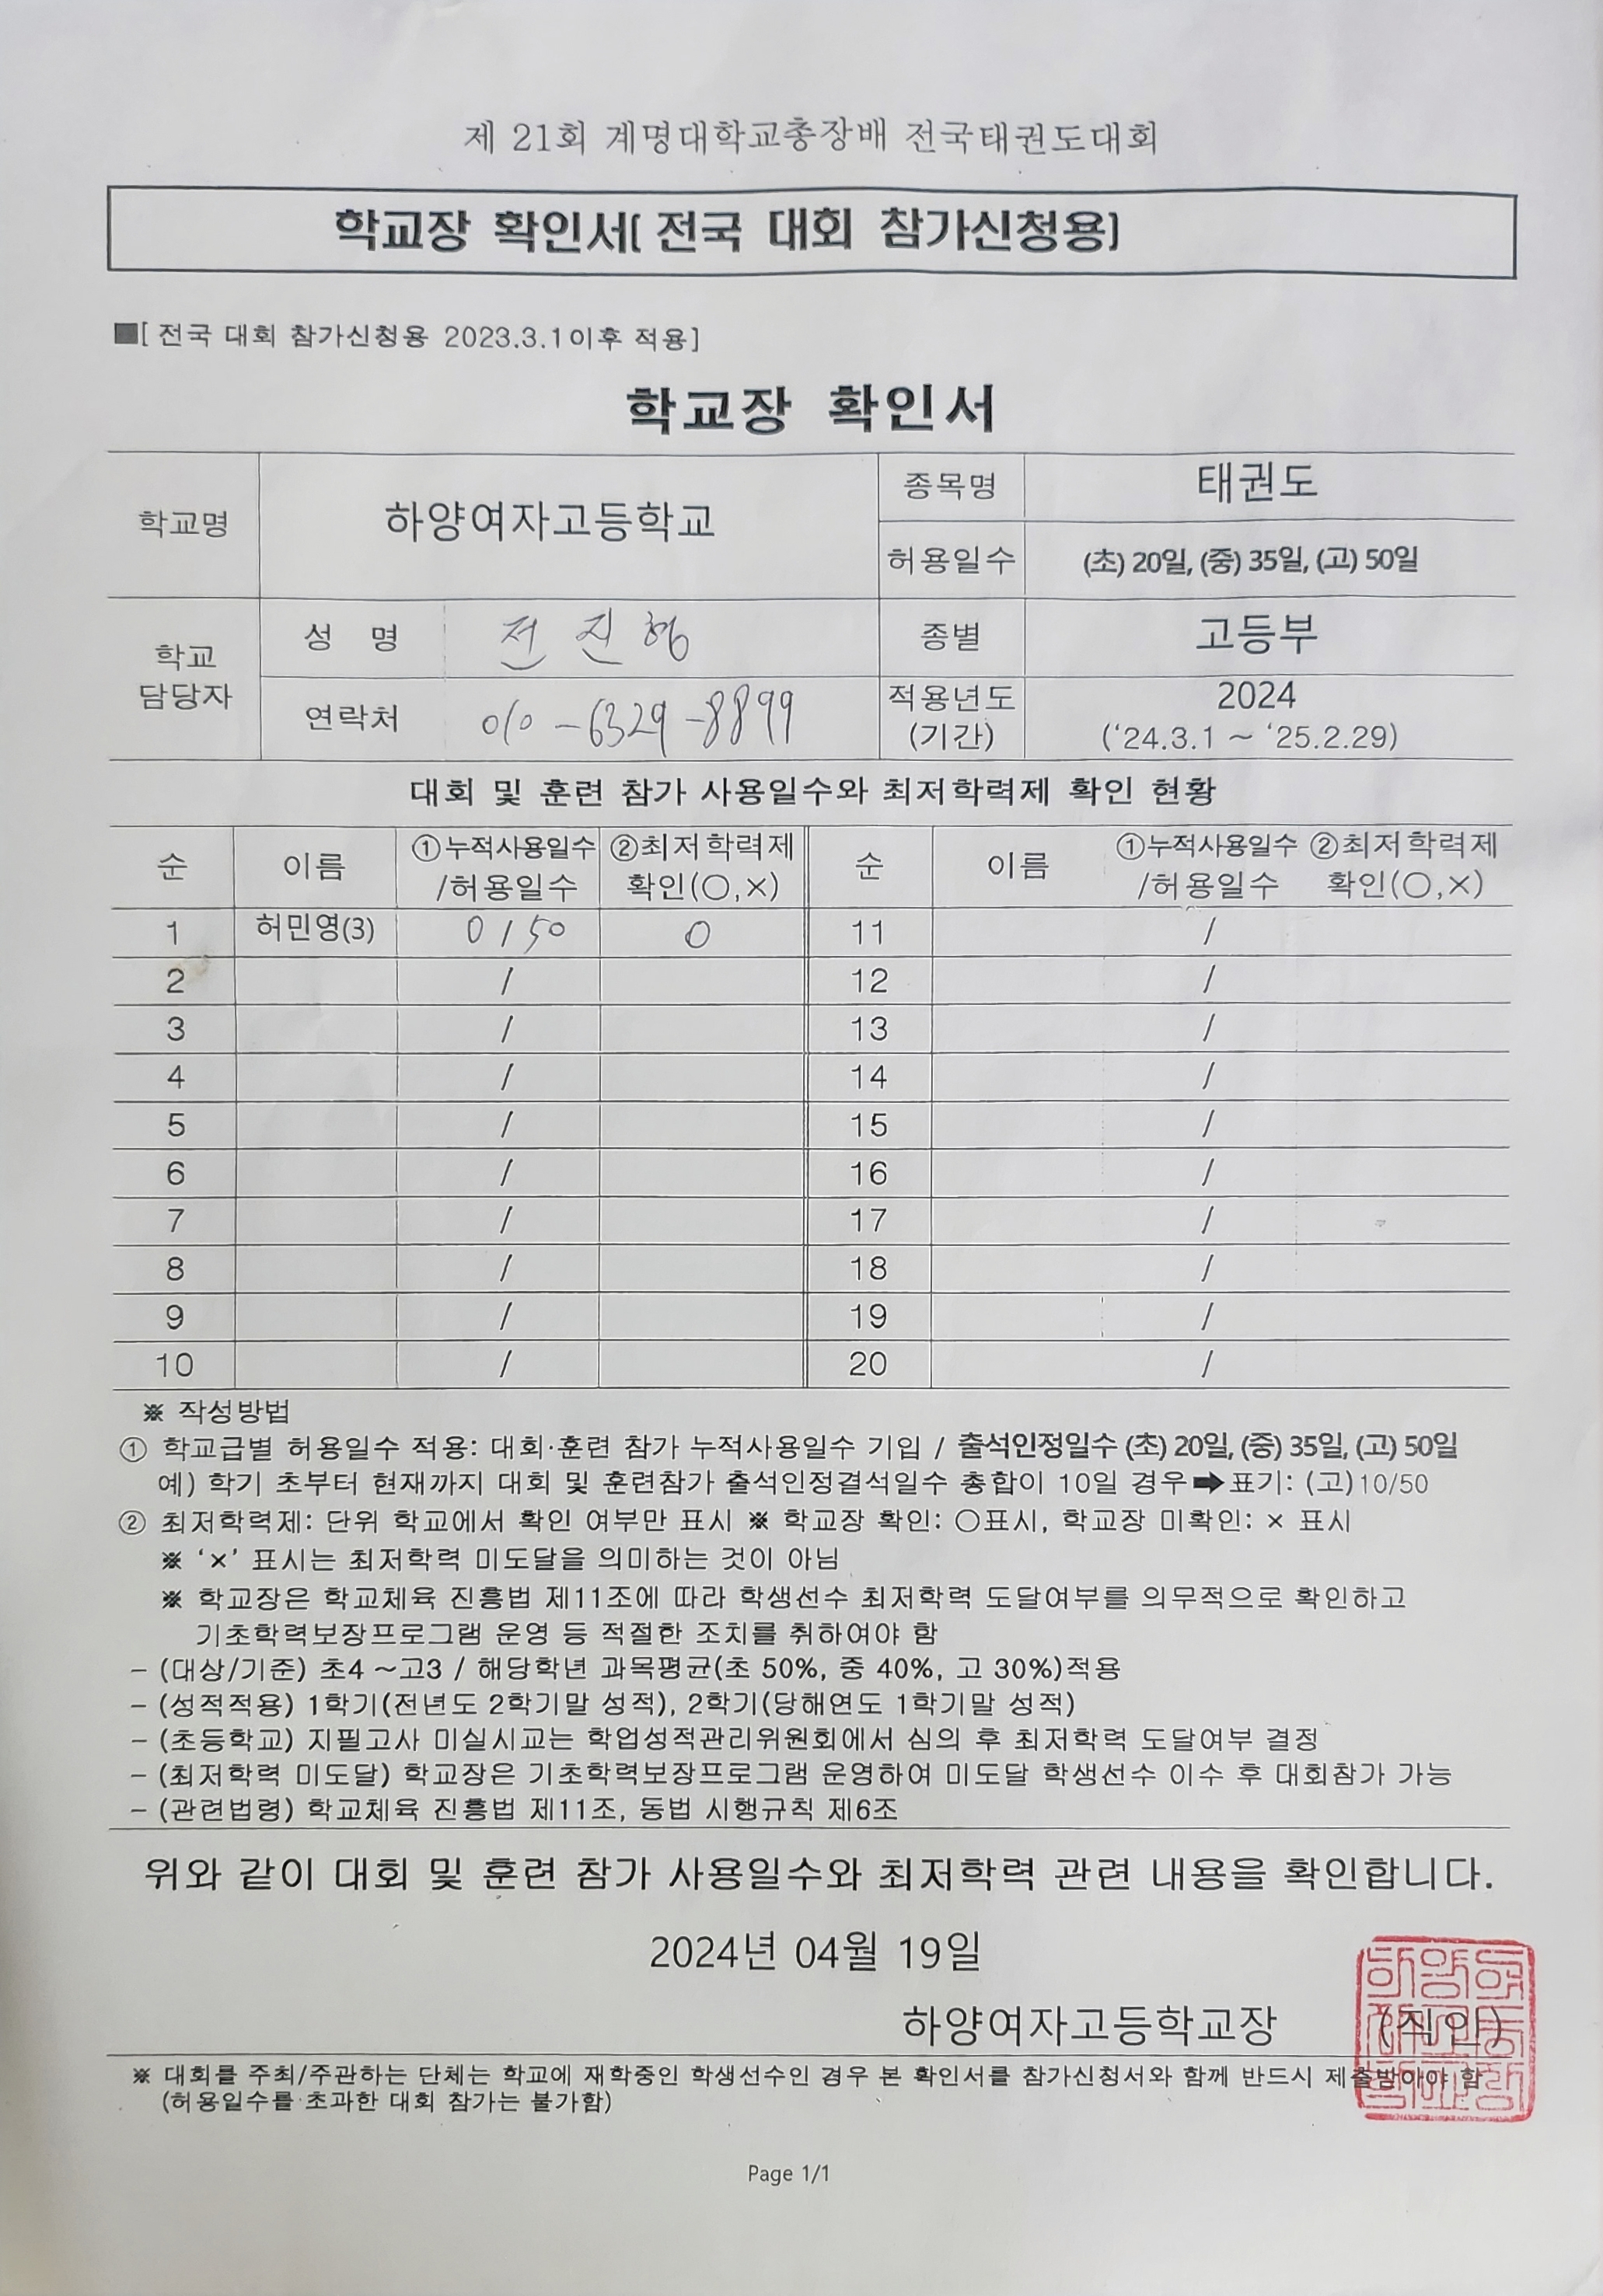 제 21회 계명대학교총장배 전국태권도대회
학교장 확인서( 전국 대회 참가신청용)
■[ 전국 대회 참가신청용 2023.3.1이후 적용]
학교장 확인서
학교명 하양여자고등학교 종목명 태권도
허용일수 (초) 20일, (중) 35일, (고) 50일
학교 담당자 성 명 전진형 종별 고등부
연락처 010-6329-8899 적용년도 (기간) 2024 (‘24.3.1 ~ ‘25.2.29)
대회 및 훈련 참가 사용일수와 최저학력제 확인 현황
순 이름 ①누적사용일수 /허용일수 ②최저학력제 확인(○,×) 순 이름 ①누적사용일수 /허용일수 ②최저학력제 확인(○,×)
1 허민영(3) 0/50 0 11 /
2 / 12 /
3 / 13 /
4 / 14 /
5 / 15 /
6 / 16 /
7 / 17 /
8 / 18 /
9 / 19 /
10 / 20 /
※ 작성방법
① 학교급별 허용일수 적용: 대회·훈련 참가 누적사용일수 기입 / 출석인정일수 (초) 20일, (중) 35일, (고) 50일
예) 학기 초부터 현재까지 대회 및 훈련참가 출석인정결석일수 총합이 10일 경우➡표기: (고)10/50
② 최저학력제: 단위 학교에서 확인 여부만 표시 ※ 학교장 확인: ○표시, 학교장 미확인: × 표시
※ ‘×’ 표시는 최저학력 미도달을 의미하는 것이 아님
※ 학교장은 학교체육 진흥법 제11조에 따라 학생선수 최저학력 도달여부를 의무적으로 확인하고
기초학력보장프로그램 운영 등 적절한 조치를 취하여야 함
- (대상/기준) 초4 ~고3 / 해당학년 과목평균(초 50%, 중 40%, 고 30%)적용
- (성적적용) 1학기(전년도 2학기말 성적), 2학기(당해연도 1학기말 성적)
- (초등학교) 지필고사 미실시교는 학업성적관리위원회에서 심의 후 최저학력 도달여부 결정
- (최저학력 미도달) 학교장은 기초학력보장프로그램 운영하여 미도달 학생선수 이수 후 대회참가 가능
- (관련법령) 학교체육 진흥법 제11조, 동법 시행규칙 제6조
위와 같이 대회 및 훈련 참가 사용일수와 최저학력 관련 내용을 확인합니다.
2024년 04월 19일
하양여자고등학교장 (직인)
※ 대회를 주최/주관하는 단체는 학교에 재학중인 학생선수인 경우 본 확인서를 참가신청서와 함께 반드시 제출받아야 함
(허용일수를 초과한 대회 참가는 불가함)
Page 1/1